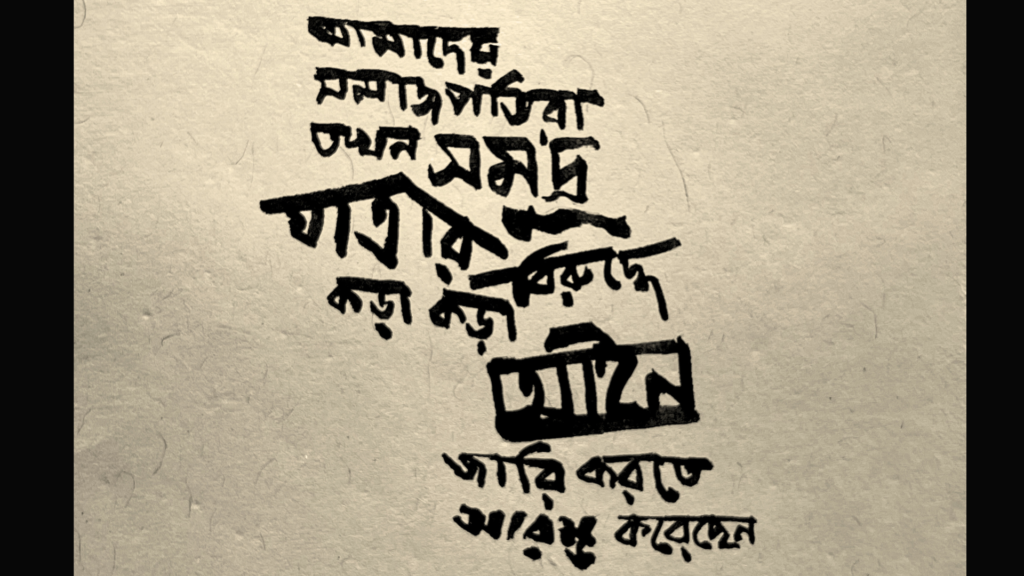 আমাদের
সমাজপতিরা
তখন সমুদ্র
যাত্রার
বিরুদ্ধে
কড়া কড়া
আইন
জারি করতে
আরম্ভ করেছেন